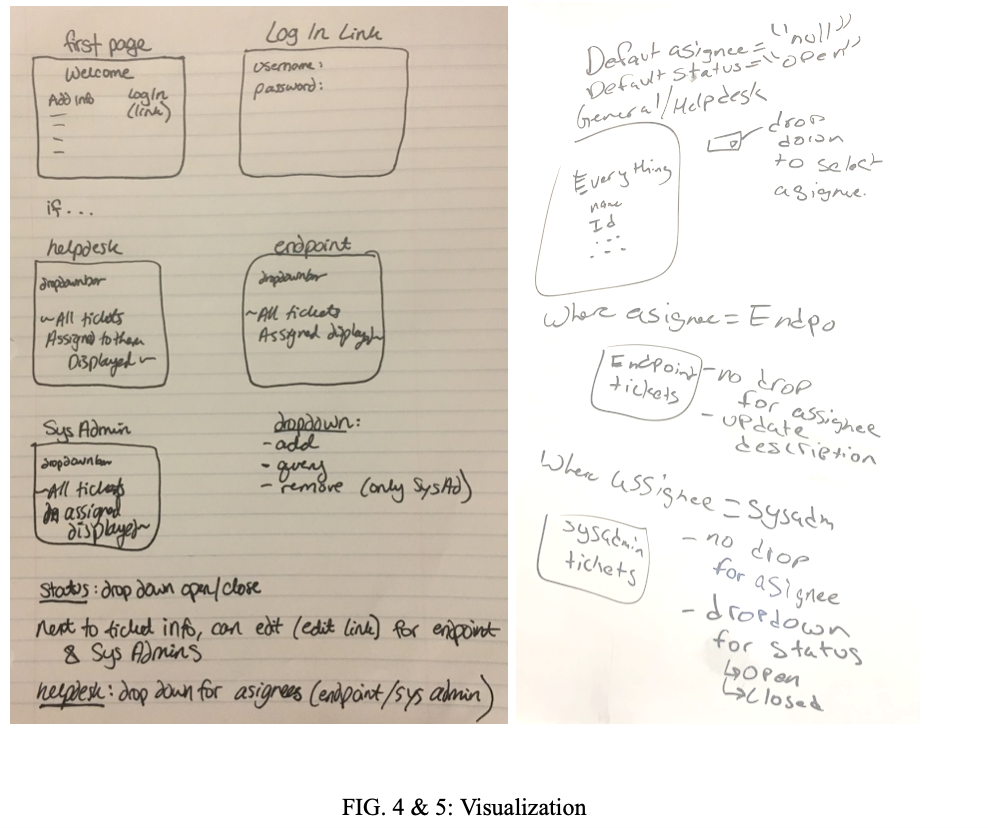 first page
Welcome
Add info
Log In
(link)
Log In Link
username:
password:
if...
helpdesk
dropdownbar
~All tickets
Assigned to them
Displayed~
endpoint
dropdownbar
~All tickets
Assigned displayed~
Sys Admin
dropdownbar
~All tickets
assigned
displayed~
dropdown:
- add
- query
- remove (only SysAd)
Status: drop down open/close
next to ticket info, can edit (edit link) for endpoint
& Sys Admins
helpdesk: drop down for asignees (endpoint/sys admin)
Defaut asignee = "null"
Default status = "open"
General/Helpdesk
Everything
name
Id
drop
down
to select
asignee.
Where asignee = Endpo
Endpoint
tickets
- no drop
for assignee
- update
description
Where assignee = sysadm
sysadmin
tickets
- no drop
for asignee
- dropdown
for status
↳open
↳closed
FIG. 4 & 5: Visualization